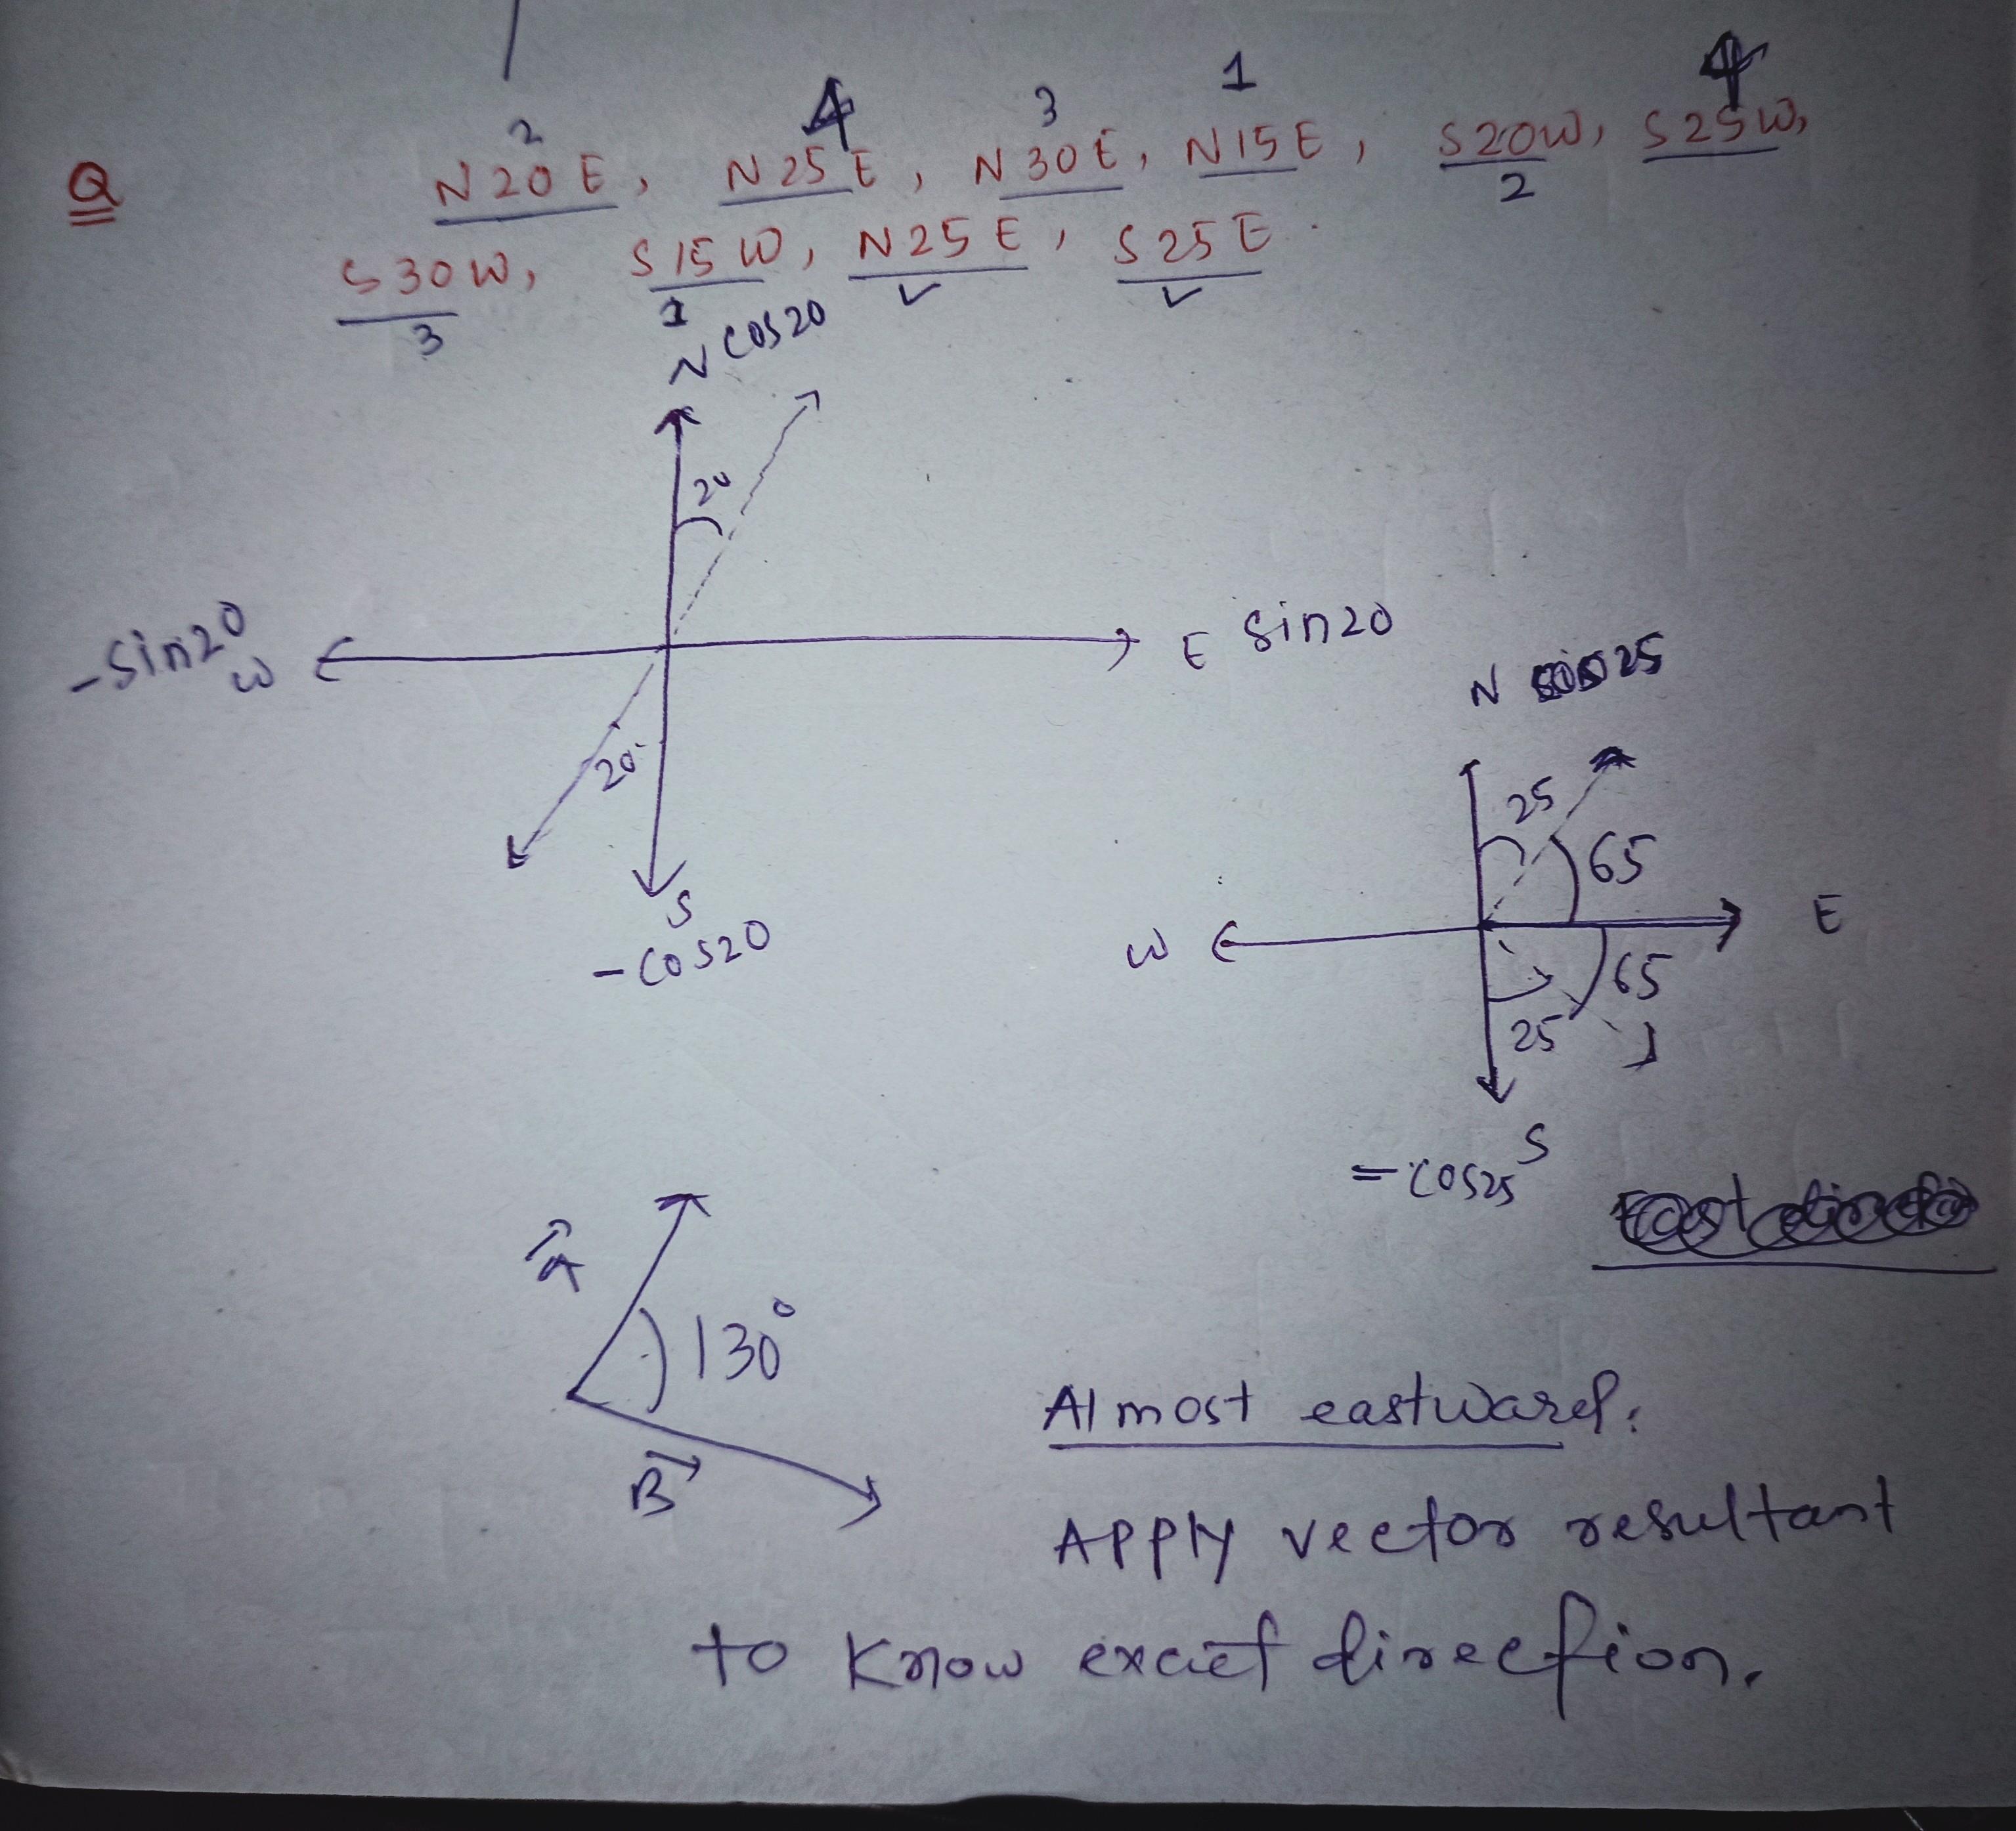 2 4 3 1 4
Q N20E, N25E, N30E, N15E, S20W, S25W,
2
S30W, S15W, N25E, S25E.
3 1 ✓ ✓
N cos20
20
-sin20
W E sin20
20
S
-cos20
N 25
25
65
W E
65
25
S
-cos25
A
130°
B
Almost eastward.
Apply vector resultant
to know exact direction.